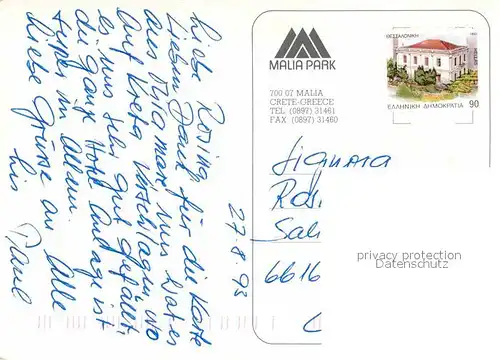 Liebe Rosina
Lieben Dank für die Karte
aus
Auf Kreta
es uns sehr gut gefällt,
die ganze Hotel Anlage ist
super in Allem.
Liebe Grüsse an Alle
Paul
27.8.93
MALIA PARK
700 07 MALIA
CRETE-GREECE
TEL (0897) 31461
FAX (0897) 31460
ΘΕΣΣΑΛΟΝΙΚΗ
ΕΛΛΗΝΙΚΗ ΔΗΜΟΚΡΑΤΙΑ 90
Signora
Ros
Sal
6616
privacy protection
Datenschutz